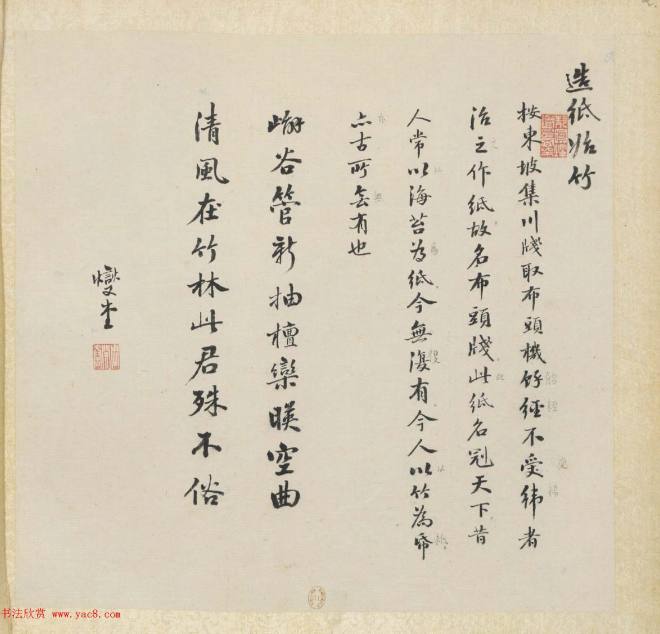 造纸始竹
按東坡集川牋取布頭機餘經不受緯者
治之作紙故名布頭牋此紙名冠天下昔
人常以海苔為紙今無復有今人以竹為帋
亦古所無有也
嶰谷管新抽檀欒暎空曲
清風在竹林此君殊不俗
书法欣赏 www.yac8.com